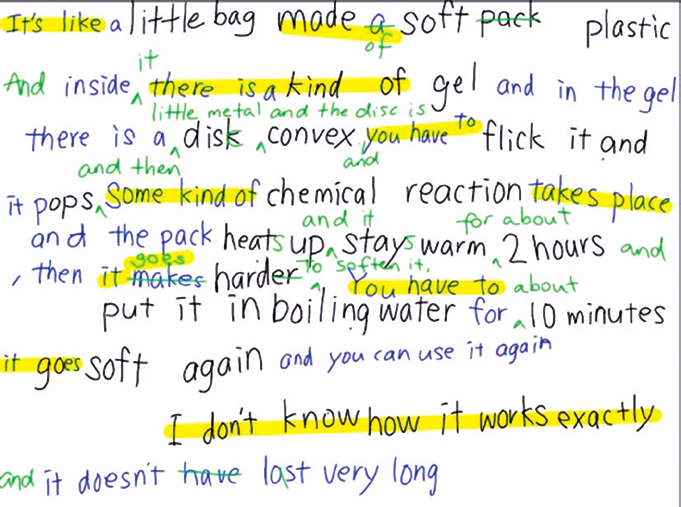 It's like a little bag made a soft pack plastic
of
it
And inside, there is a kind of gel and in the gel
little metal and the disc is
there is a disk convex you have to flick it and
and then and
it pops, Some kind of chemical reaction takes place
and it for about
and the pack heats up, stays warm 2 hours and
goes to soften it,
, then it makes harder You have to about
put it in boiling water for 10 minutes
it goes soft again and you can use it again
I don't know how it works exactly
and it doesn't have last very long